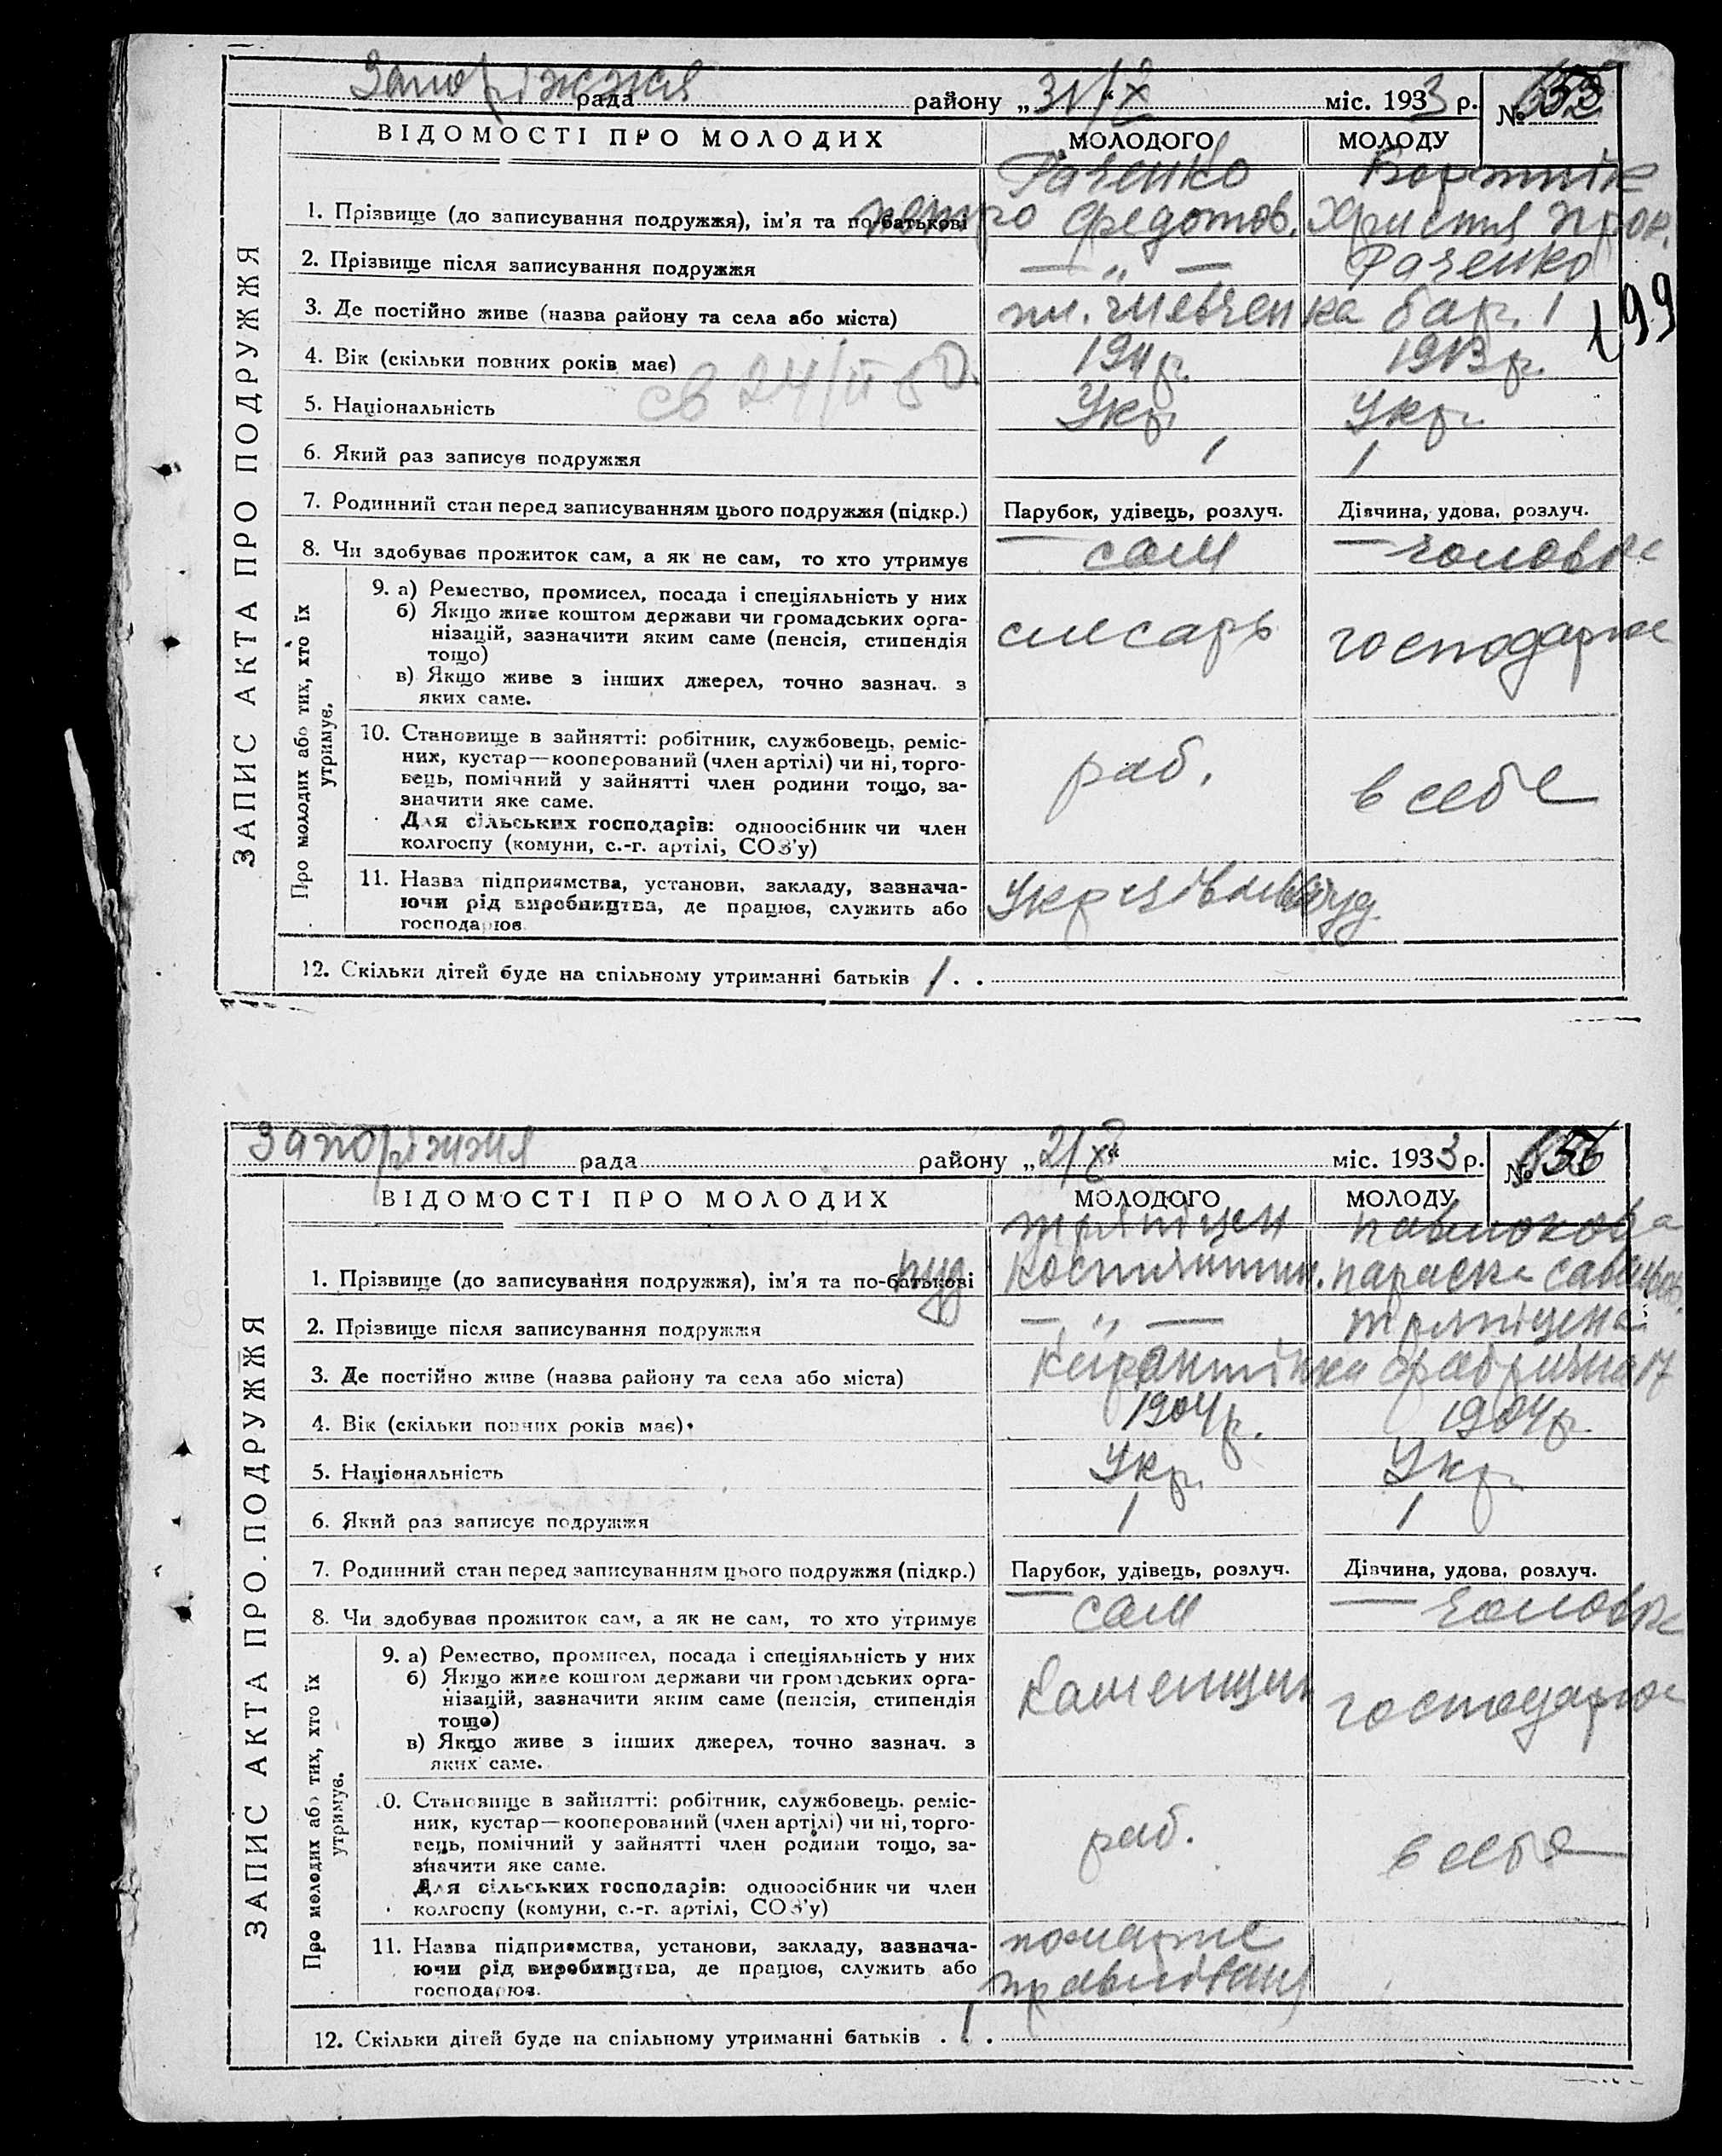 Запоріжжя рада району „31/X“ міс. 1933 р. №
ВІДОМОСТІ ПРО МОЛОДИХ МОЛОДОГО МОЛОДУ
Раченко
1. Прізвище (до записування подружжя), ім'я та по-батькові Петро Федотов. Христя Прок.
2. Прізвище після записування подружжя — „ — Раченко
3. Де постійно живе (назва району та села або міста) пл. Шевченка бар. 1
199
4. Вік (скільки повних років має) 1911 р. 1913 р.
св 24/II
5. Національність Укр. Укр.
6. Який раз записує подружжя 1 1
7. Родинний стан перед записуванням цього подружжя (підкр.) Парубок, удівець, розлуч. Дівчина, удова, розлуч.
8. Чи здобуває прожиток сам, а як не сам, то хто утримує сам чоловік
9. а) Ремество, промисел, посада і спеціяльність у них
б) Якщо живе коштом держави чи громадських орга-
нізацій, зазначити яким саме (пенсія, стипендія слесарь господарює
тощо)
в) Якщо живе з інших джерел, точно зазнач. з
яких саме.
10. Становище в зайнятті: робітник, службовець, реміс-
них, кустар—кооперований (член артілі) чи ні, торго-
вець, помічний у зайнятті член родини тощо, за- раб. в себе
значити яке саме.
Для сільських господарів: одноосібник чи член
колгоспу (комуни, с.-г. артілі, СОЗ'у)
11. Назва підприямства, установи, закладу, зазнача-
ючи рід виробництва, де працює, служить або
господарює
12. Скільки дітей буде на спільному утриманні батьків 1 . .
ЗАПИС АКТА ПРО ПОДРУЖЖЯ
Про молодих або тих, хто їх
утримує.
Запоріжжя рада району „21/X“ міс. 1933 р. №
ВІДОМОСТІ ПРО МОЛОДИХ МОЛОДОГО МОЛОДУ
1. Прізвище (до записування подружжя), ім'я та по-батькові Параска
2. Прізвище після записування подружжя — „ —
3. Де постійно живе (назва району та села або міста) Карантінка фабрична 17
4. Вік (скільки повних років має) 1904 р. 1904 р.
5. Національність Укр. Укр.
6. Який раз записує подружжя 1 1
7. Родинний стан перед записуванням цього подружжя (підкр.) Парубок, удівець, розлуч. Дівчина, удова, розлуч.
8. Чи здобуває прожиток сам, а як не сам, то хто утримує сам чоловік
9. а) Ремество, промисел, посада і спеціяльність у них
б) Якщо живе коштом держави чи громадських орга-
нізацій, зазначити яким саме (пенсія, стипендія каменщик господарює
тощо)
в) Якщо живе з інших джерел, точно зазнач. з
яких саме.
10. Становище в зайнятті: робітник, службовець, реміс-
ник, кустар—кооперований (член артілі) чи ні, торго-
вець, помічний у зайнятті член родини тощо, за- раб. в себе
значити яке саме.
Для сільських господарів: одноосібник чи член
колгоспу (комуни, с.-г. артілі, СОЗ'у)
11. Назва підприємства, установи, закладу, зазнача-
ючи рід виробництва, де працює, служить або
господарює.
12. Скільки дітей буде на спільному утриманні батьків . 1 .
ЗАПИС АКТА ПРО ПОДРУЖЖЯ
Про молодих або тих, хто їх
утримує.